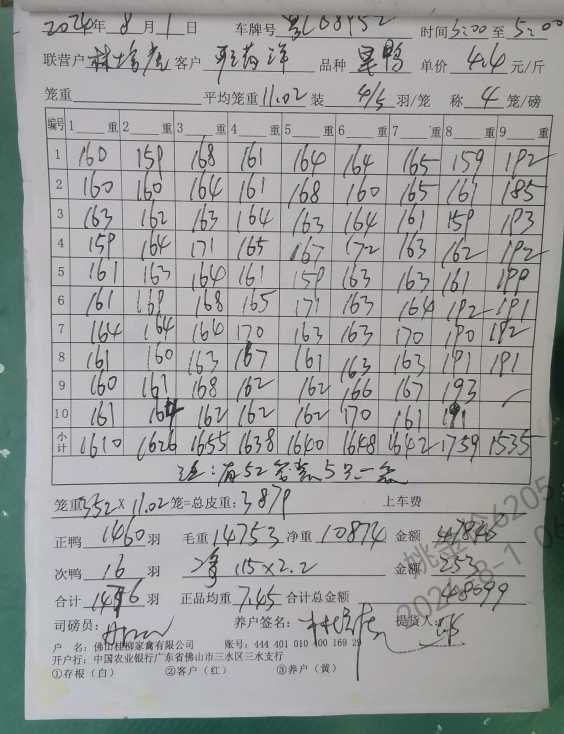 2024年 8 月 1 日 车牌号 粤L08952 时间 3:00 至 5:00
联营户 客户 品种 单价 4.4 元/斤
笼重 平均笼重 11.02 装 4/5 羽/笼 称 4 笼/磅
编号 1 重 2 重 3 重 4 重 5 重 6 重 7 重 8 重 9 重
1 160 159 168 161 164 164 165 159 192
2 160 160 164 161 168 160 165 161 185
3 163 162 163 164 163 164 161 159 193
4 159 164 171 165 167 172 163 162 192
5 161 163 164 161 159 163 163 161 199
6 161 168 165 171 163 164 192 191
7 164 164 164 170 163 163 170 190 192
8 161 160 163 167 161 163 163 191 191
9 160 167 168 162 162 166 167 193
10 161 164 162 162 162 170 161 191
小计 1610 1626 1655 1638 1640 1648 1642 1759 1535
注:有52笼装5只一笼
笼重 352 × 11.02 笼=总皮重: 3879 上车费
正鸭 1460 羽 毛重 14753 净重 10874 金额 47846
次鸭 16 羽 净 115×2.2 金额 253
合计 1476 羽 正品均重 7.45 合计总金额 48099
司磅员: 养户签名: 提货人:
户 名: 佛山桂柳家禽有限公司 账号: 444 401 010 400 169 29
开户行: 中国农业银行广东省佛山市三水区三水支行
①存根(白) ②客户(红) ③养户(黄)
6205
2024-8-1 06